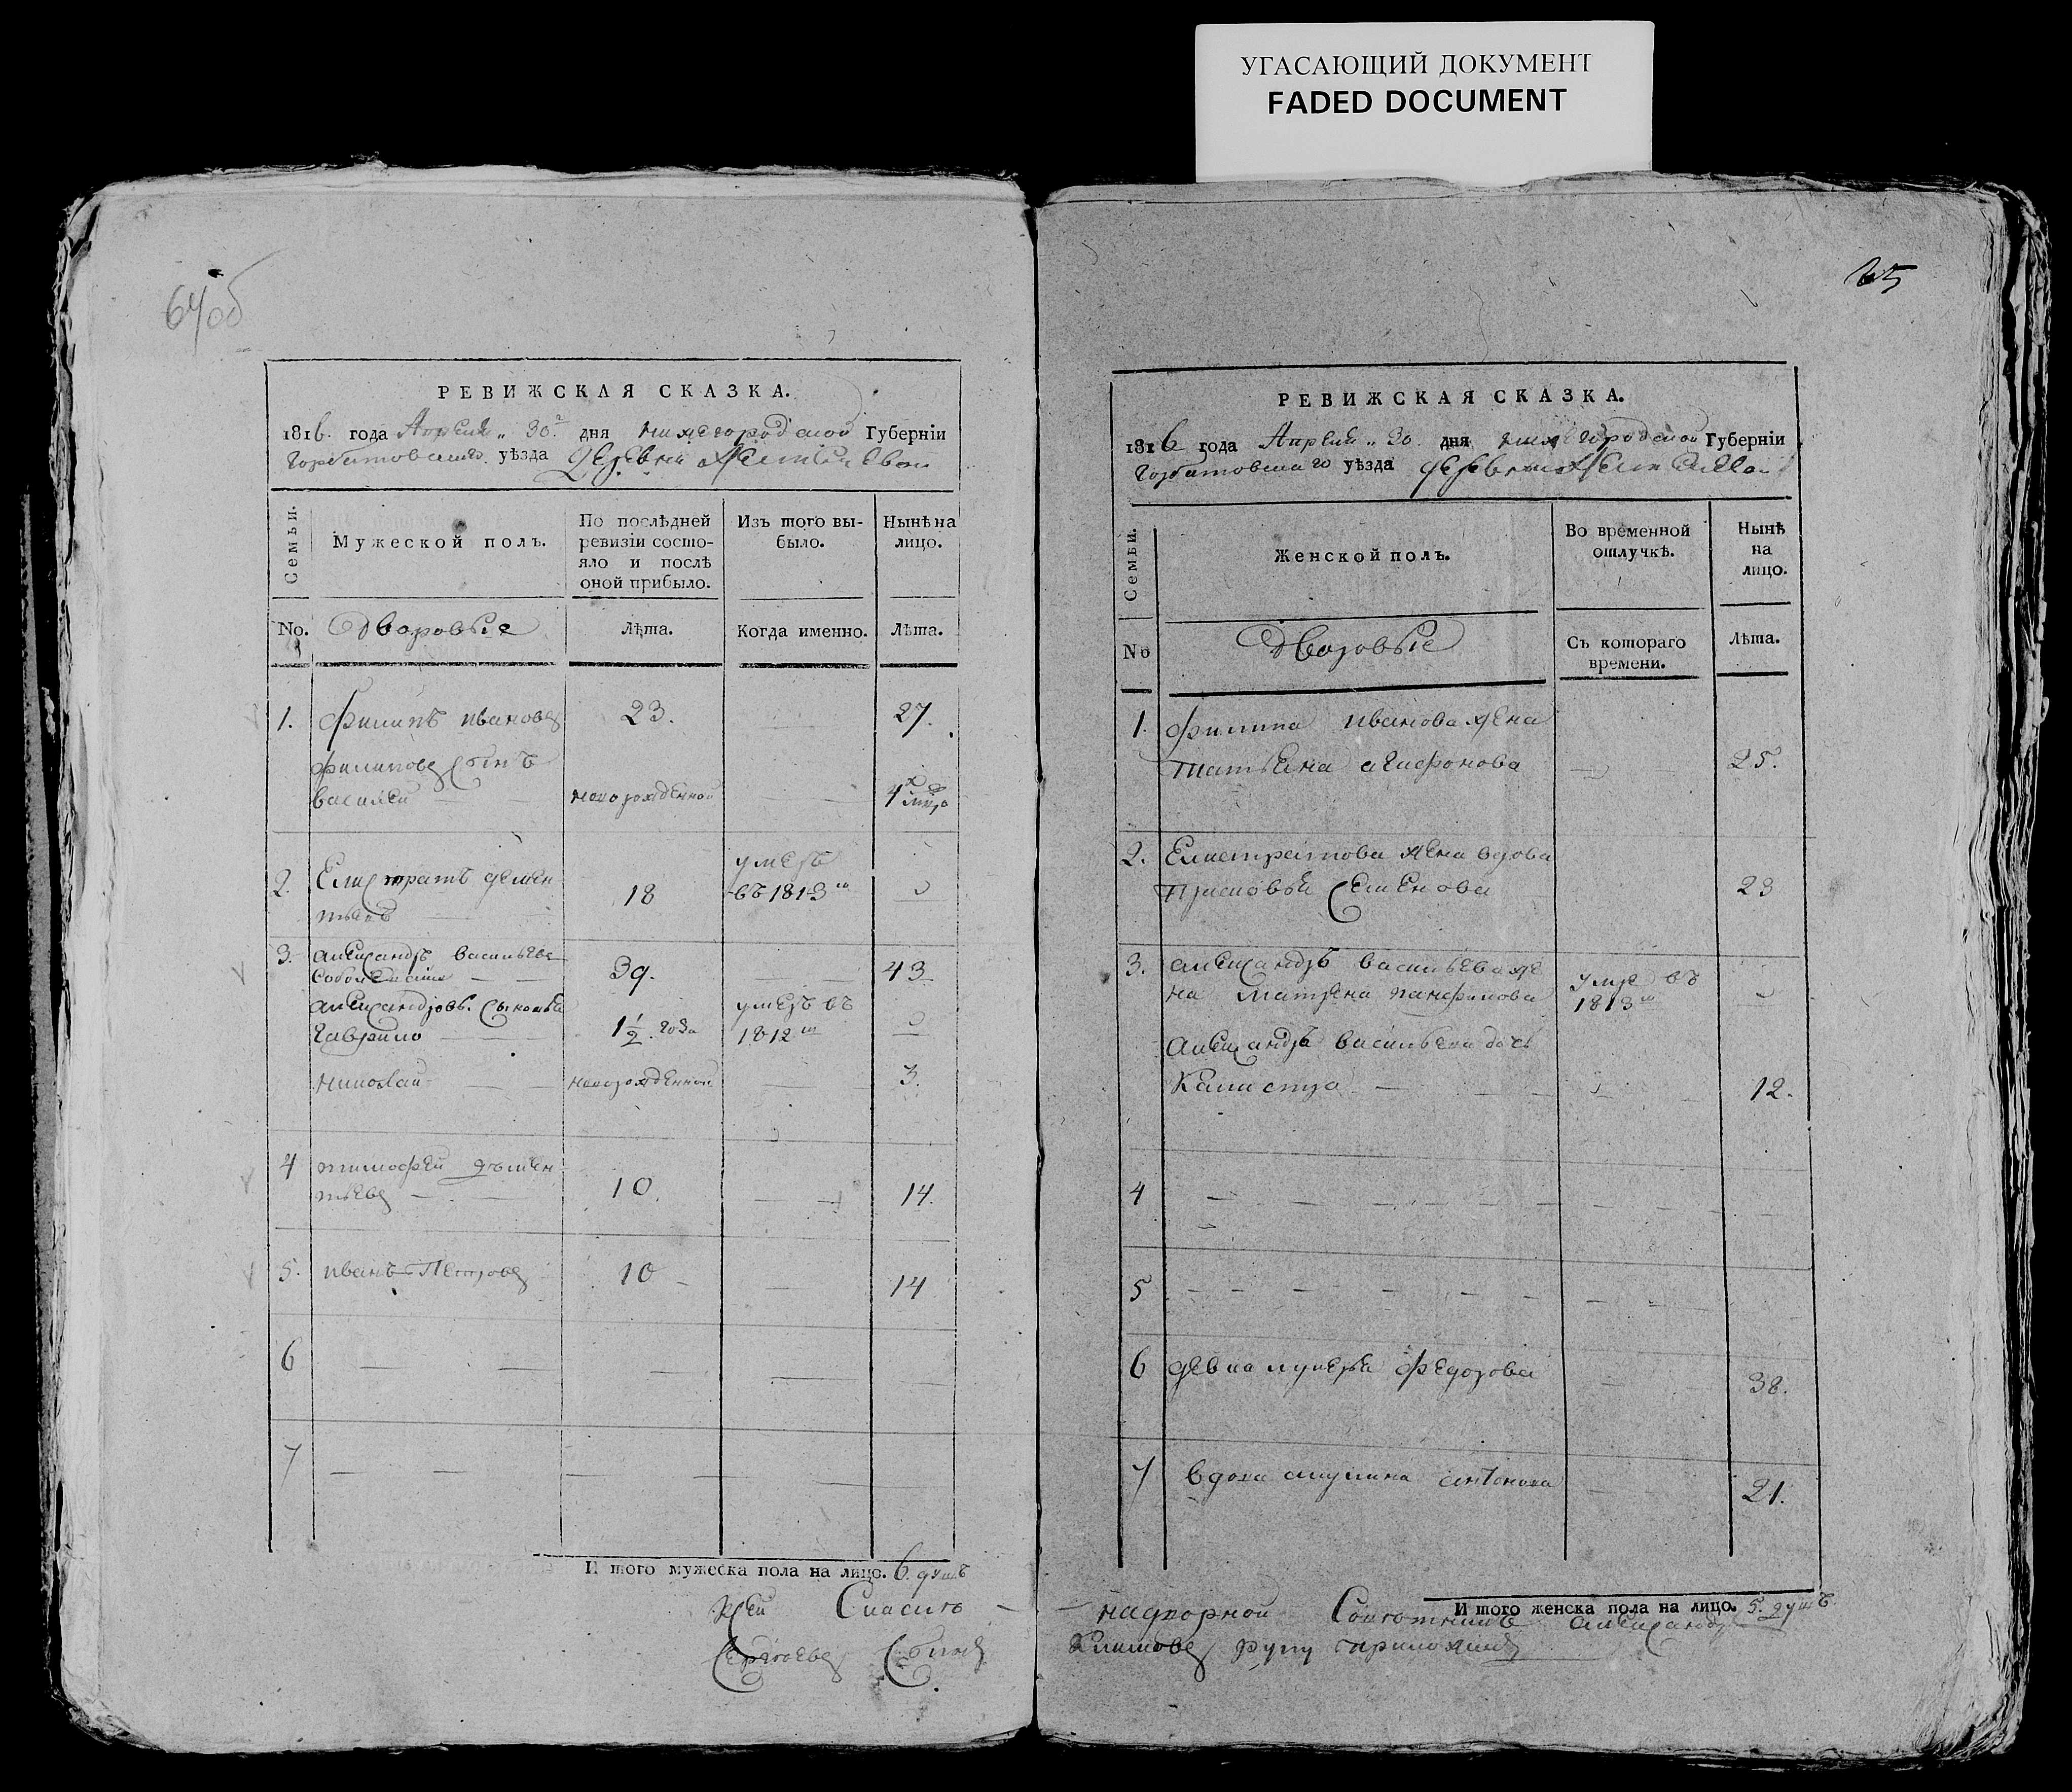 УГАСАЮЩИЙ ДОКУМЕНТ
FADED DOCUMENT
64об
РЕВИЖСКАЯ СКАЗКА.
1816. года Апреля „ 30.г дня нижегородской Губерніи
Горбатовскаго уѣзда Деревни
Семьи.
Мужеской полъ.
По послѣдней
ревизіи состо-
яло и послѣ
оной прибыло.
Изъ того вы-
было.
Нынѣ на
лицо.
No.
Дворовые
Лѣта.
Когда именно.
Лѣта.
1. Филипъ иванов 23. 27.
филипов сынъ
василей новорожденной 4х
2. Елистратъ демен умеръ
18 въ 1813м
тьевъ
3. александръ васильев
39. 43
александров. сыновья умеръ въ
гаврило 1½ года 1812м
николай новорожденной 3.
4 тимофей демен
тьев 10. 14.
5. иванъ Петров 10 14
6
7
И того мужеска пола на лицо. 6. душъ
Сергеев сынъ
65
РЕВИЖСКАЯ СКАЗКА.
1816 года Апреля „ 30. дня нижегородской Губерніи
Горбатовскаго уѣзда деревни
Семьи.
Женской полъ.
Во временной
отлучкѣ.
Нынѣ
на
лицо.
No
Дворовые
Съ котораго
времени.
Лѣта.
1. филипа иванова жена
татьяна агафонова 25.
2. Елистратова жена вдова
семенова 23
3. александръ васильева же
на матрена панфилова умре въ
1813м
александра васильева дочь
12.
4
5
6 девка лукерья федорова 38.
7 вдова акулина антонова 21.
И того женска пола на лицо. 5. душъ
надворной Советникъ александр
Климов руку приложил